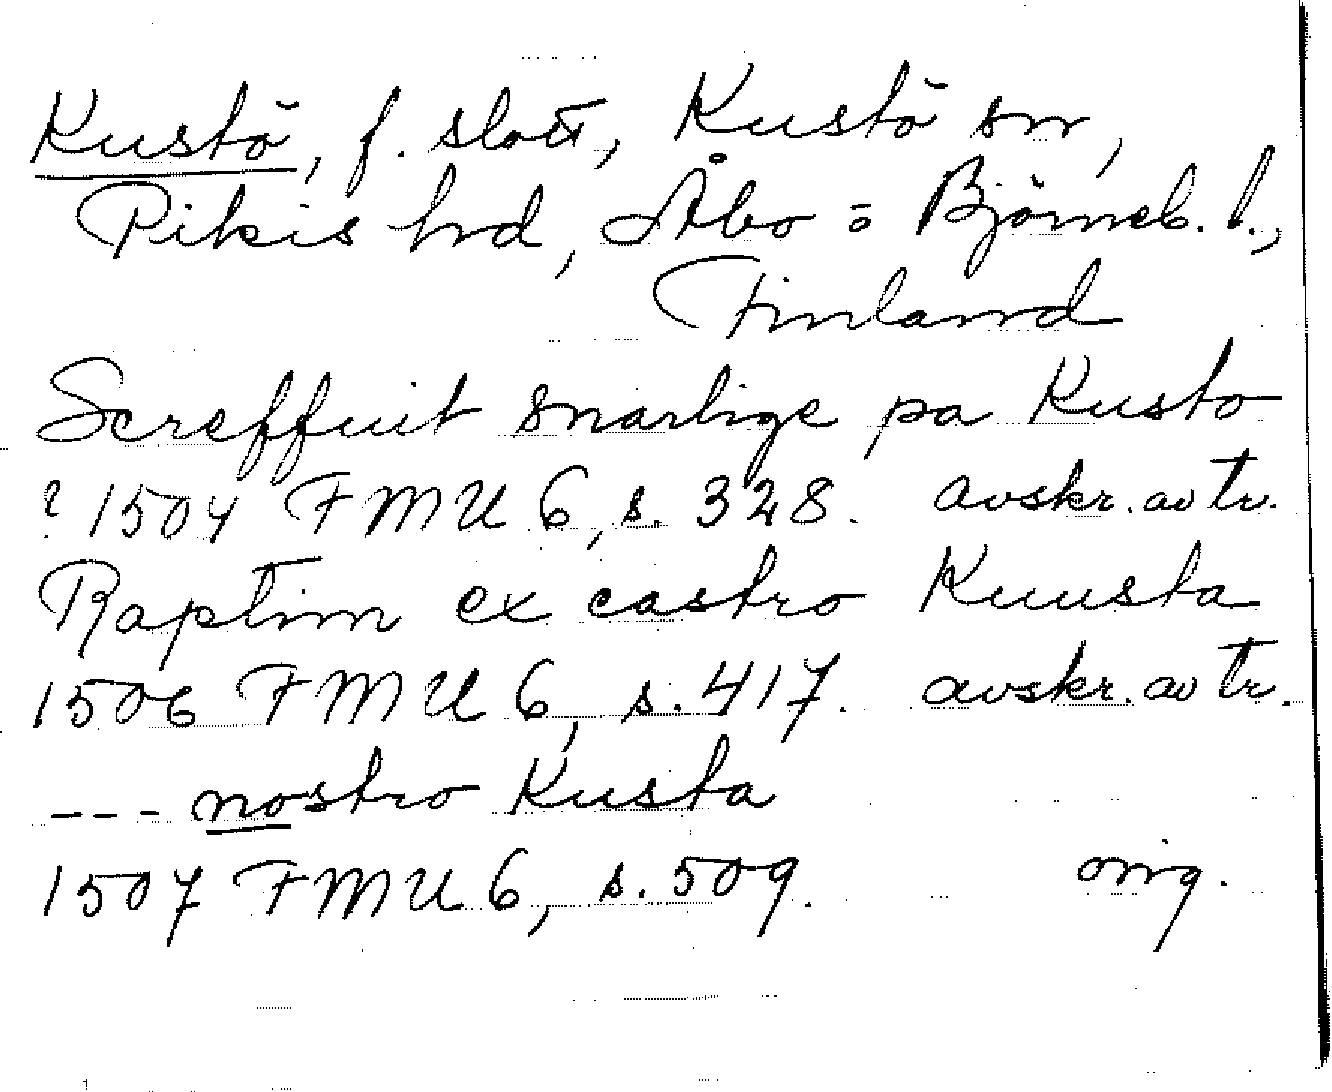 Kustö, f. slott, Kustö sn,
Pikis hrd, Åbo o Björneb. l.,
Finland
Screffuit snarlige pa Kusto
? 1504 FMU 6, s. 328. avskr. av tr.
Raptim ex castro Kuusta
1506 FMU 6, s. 417. avskr. av tr.
--- nostro Kusta
1507 FMU 6, s. 509. orig.